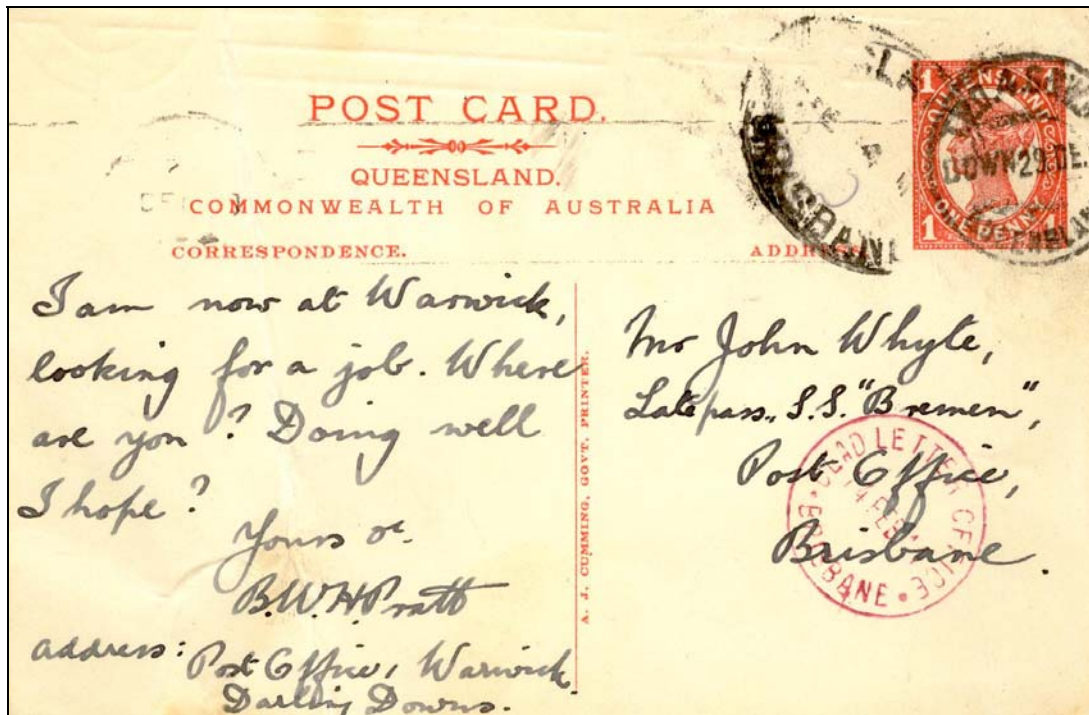 POST CARD.
QUEENSLAND.
COMMONWEALTH OF AUSTRALIA
CORRESPONDENCE.
I am now at Warwick,
looking for a job. Where
are you? Doing well
I hope?
Yours &c.
B.W.H Pratt
address: Post Office, Warwick
Darling Downs.
A. J. CUMMING, GOVT. PRINTER.
Mr John Whyte,
Late pass., S.S. "Bremen",
Post Office,
Brisbane.
DEAD LETTER OFFICE
14 FEB
BRISBANE
BRISBANE
1 QUEENSLAND 1
1 ONE PENNY 1
DOWN 29 DE